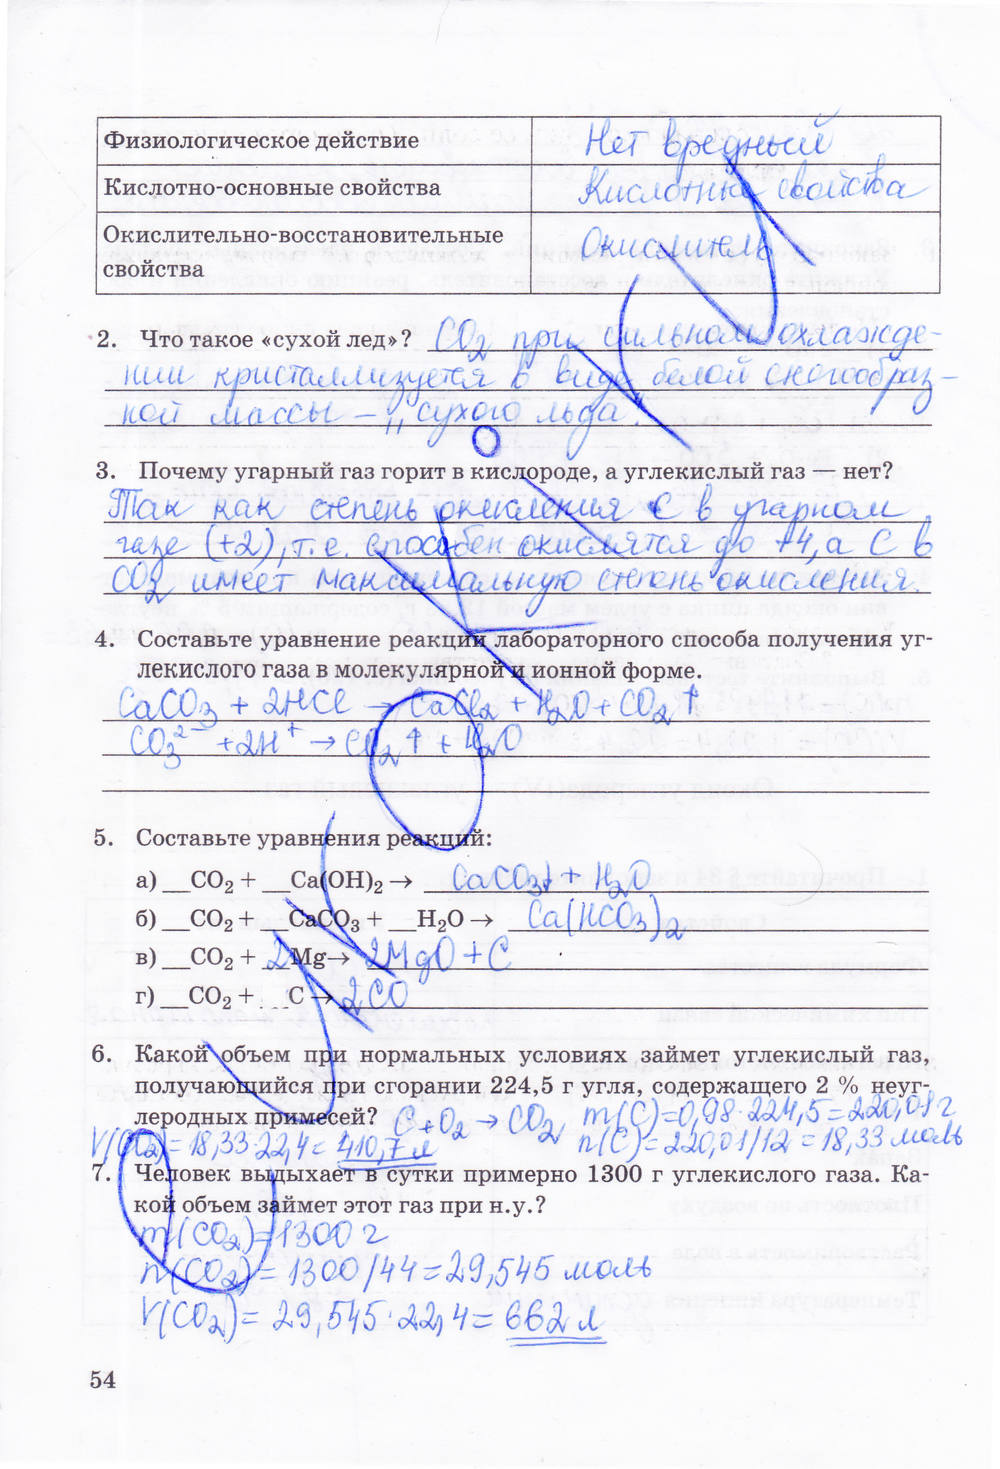 Физиологическое действие Нет вредный
Кислотно-основные свойства Кислотные свойства
Окислительно-восстановительные свойства Окислитель
2. Что такое «сухой лед»? CO2 при сильном охлажде-
нии кристаллизуется в виде белой снегообраз-
ной массы – „сухого льда".
3. Почему угарный газ горит в кислороде, а углекислый газ — нет?
Так как степень окисления C в угарном
газе (+2), т.е. способен окислятся до +4, а C в
CO2 имеет максимальную степень окисления.
4. Составьте уравнение реакции лабораторного способа получения уг-
лекислого газа в молекулярной и ионной форме.
CaCO3 + 2HCl → CaCl2 + H2O + CO2↑
CO3²⁻ + 2H⁺ → CO2↑ + H2O
5. Составьте уравнения реакций:
а) __CO2 + __Ca(OH)2 → CaCO3↓ + H2O
б) __CO2 + __CaCO3 + __H2O → Ca(HCO3)2
в) __CO2 + 2Mg→ 2MgO + C
г) __CO2 + __C → 2CO
6. Какой объем при нормальных условиях займет углекислый газ,
получающийся при сгорании 224,5 г угля, содержащего 2 % неуг-
леродных примесей? C + O2 → CO2 m(C)=0,98·224,5=220,01г
V(CO2)=18,33·22,4=410,7л n(C)=220,01/12=18,33 моль
7. Человек выдыхает в сутки примерно 1300 г углекислого газа. Ка-
кой объем займет этот газ при н.у.?
m(CO2)=1300 г
n(CO2)=1300/44=29,545 моль
V(CO2)=29,545·22,4=662 л
54